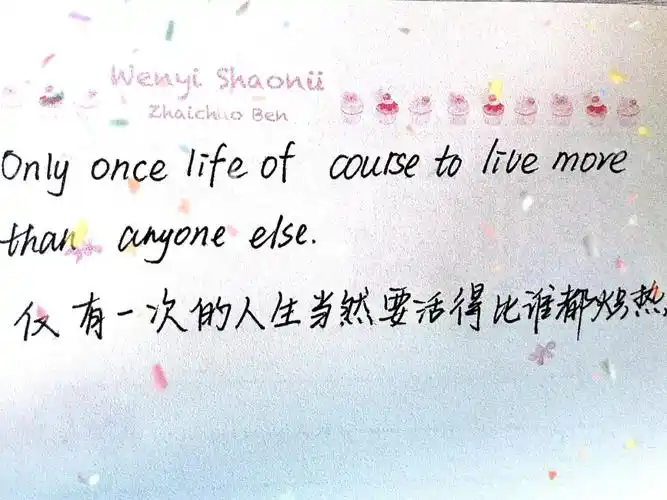 Wenyi Shaonü
Zhaichao Ben
Only once life of course to live more
than anyone else.
仅有一次的人生当然要活得比谁都炽热